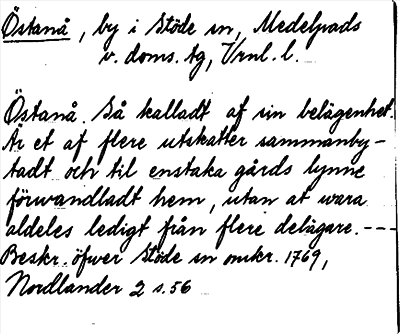 Östanå, by i Stöde sn, Medelpads
v. doms. tg, Vrnl. l.
Östanå. Så kalladt af sin belägenhet.
Är et af flere utskatter sammanby-
tadt och til enstaka gårds lynne
förwandladt hem, utan at wara
aldeles ledigt från flere delägare. ---
Beskr. öfwer Stöde sn omkr. 1769,
Nordlander 2 s. 56